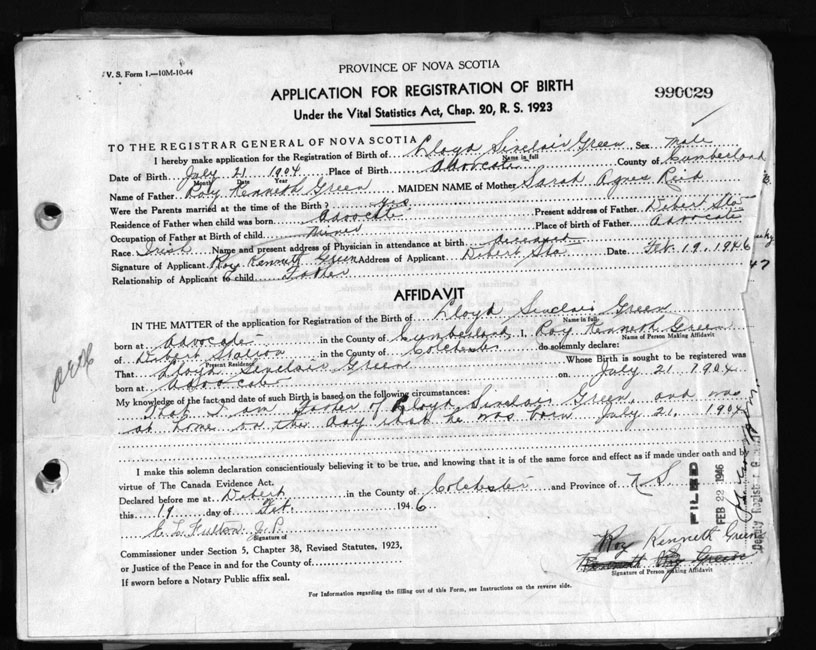 V. S. Form 1.—10M-10-44
PROVINCE OF NOVA SCOTIA
APPLICATION FOR REGISTRATION OF BIRTH
990029
Under the Vital Statistics Act, Chap. 20, R. S. 1923
TO THE REGISTRAR GENERAL OF NOVA SCOTIA
I hereby make application for the Registration of Birth of Lloyd Sinclair Green Sex Male
Name in full
Date of Birth July 21 1904 Place of Birth Advocate County of Cumberland
Month Date Year
Name of Father Roy Kenneth Green MAIDEN NAME of Mother Sarah Agnes Reid
Were the Parents married at the time of the Birth? Yes
Residence of Father when child was born Advocate Present address of Father Debert Sta
Occupation of Father at Birth of child Miner Place of birth of Father Advocate
Race Irish Name and present address of Physician in attendance at birth deceased
Signature of Applicant Roy Kenneth Green Address of Applicant Debert Sta Date Feb. 19, 1946
Relationship of Applicant to child Father
AFFIDAVIT
IN THE MATTER of the application for Registration of the Birth of Lloyd Sinclair Green
Name in full
born at Advocate in the County of Cumberland I, Roy Kenneth Green
Name of Person Making Affidavit
of Debert Station in the County of Colchester do solemnly declare:
Present Residence
That Lloyd Sinclair Green Whose Birth is sought to be registered was
born at Advocate on July 21 1904
My knowledge of the fact and date of such Birth is based on the following circumstances:
That I am Father of Lloyd Sinclair Green, and was
at home on the day that he was born July 21, 1904
I make this solemn declaration conscientiously believing it to be true, and knowing that it is of the same force and effect as if made under oath and by
virtue of The Canada Evidence Act.
Declared before me at Debert in the County of Colchester and Province of N.S.
this 19 day of Feb. 1946
E. L. Fulton J.P.
Signature of
Commissioner under Section 5, Chapter 38, Revised Statutes, 1923,
or Justice of the Peace in and for the County of
If sworn before a Notary Public affix seal.
Roy Kenneth Green
Signature of Person Making Affidavit
For Information regarding the filling out of this Form, see Instructions on the reverse side.
FILED
FEB 22 1946
47